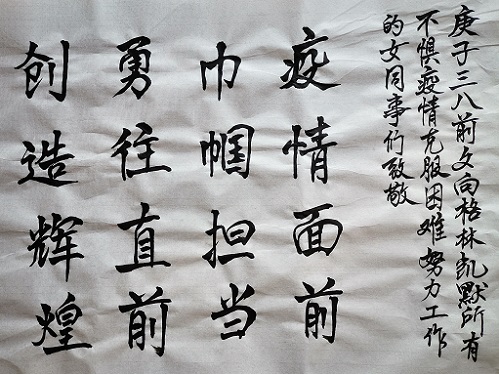 庚子三八前夕向格林凯默所有
不惧疫情克服困难努力工作
的女同事们致敬
疫情面前
巾帼担当
勇往直前
创造辉煌